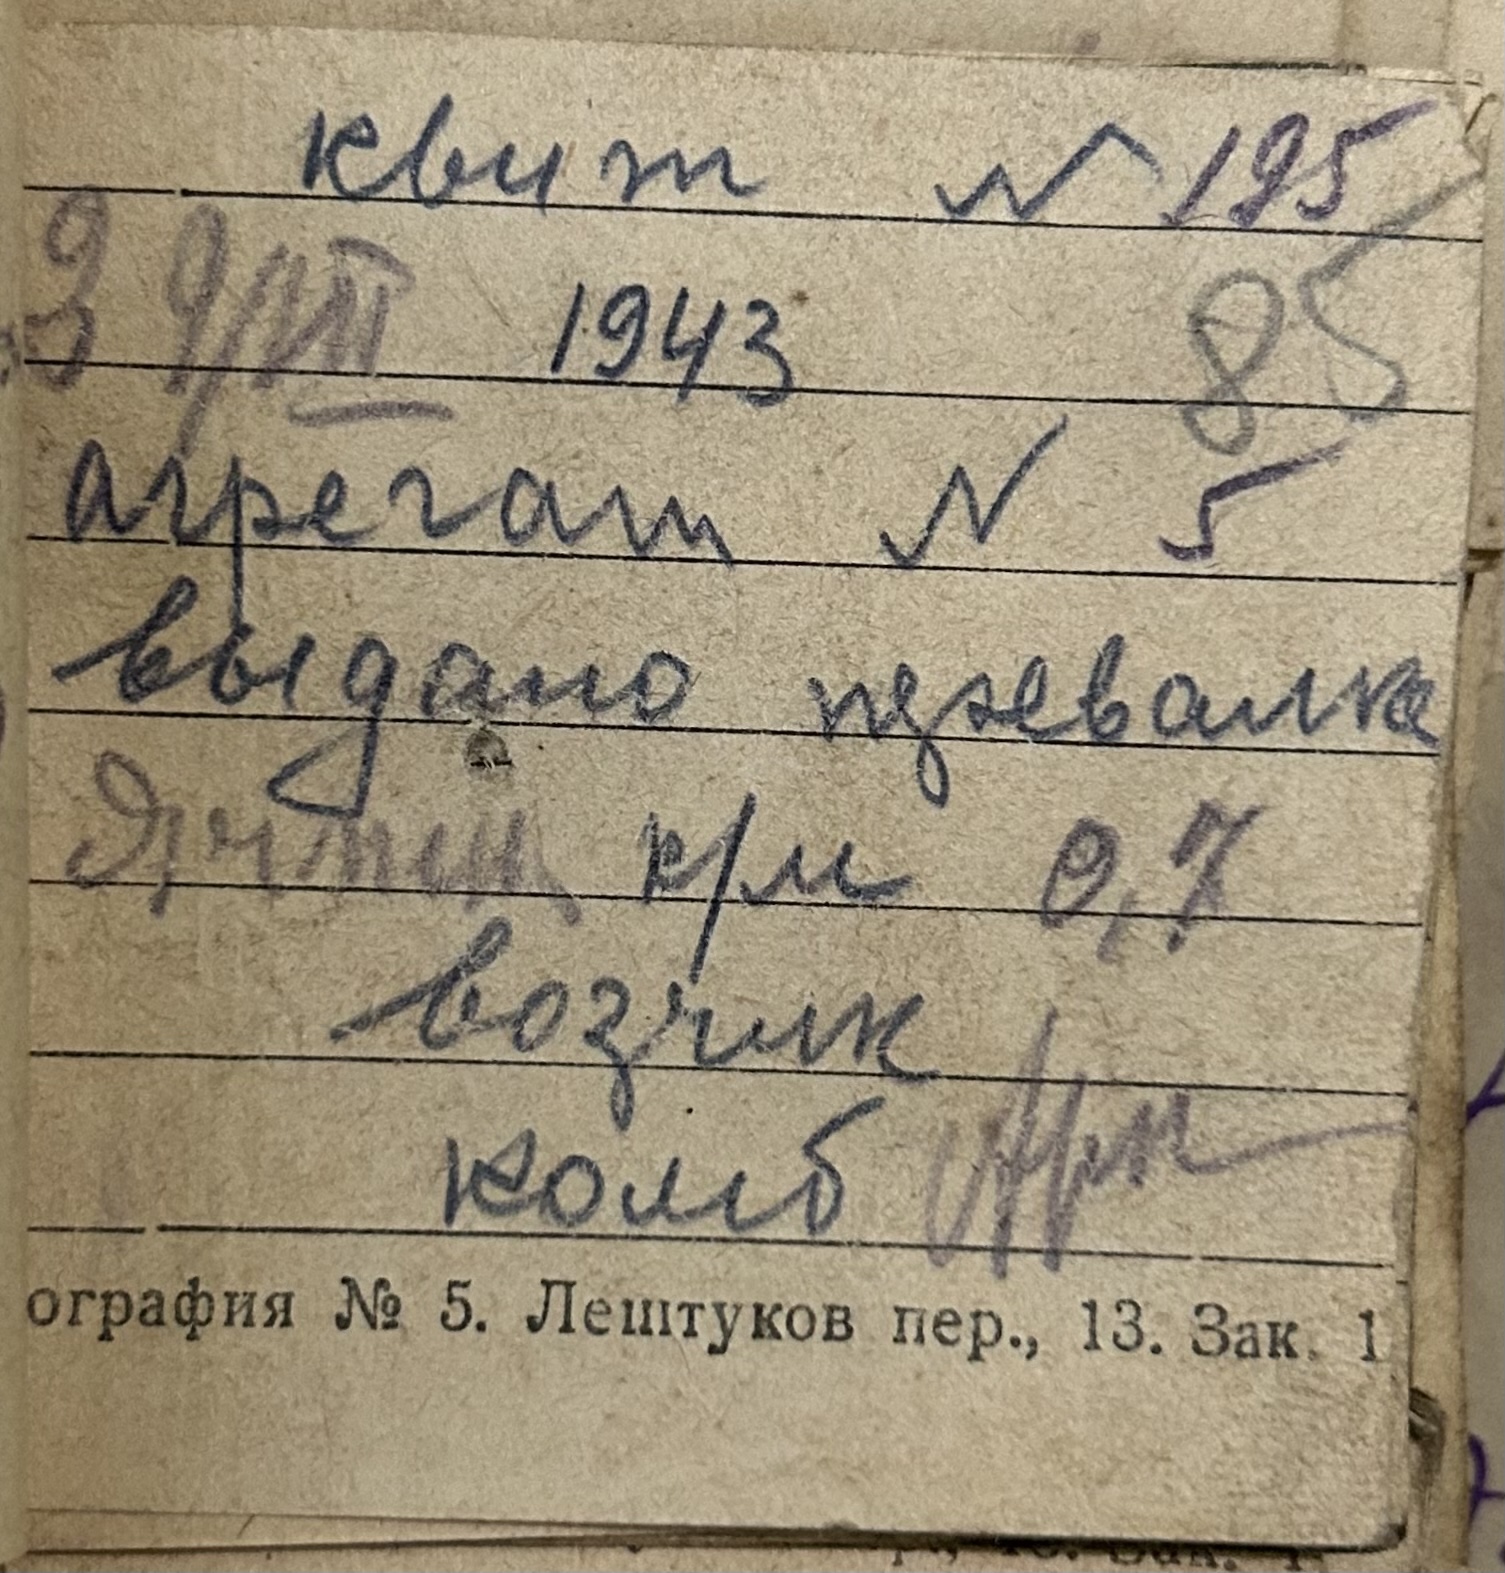 квит № 195
9/VIII 1943 85
агрегат № 5
выдано
к/м 0,7
возчик
колб
ография № 5. Лештуков пер., 13. Зак. 1